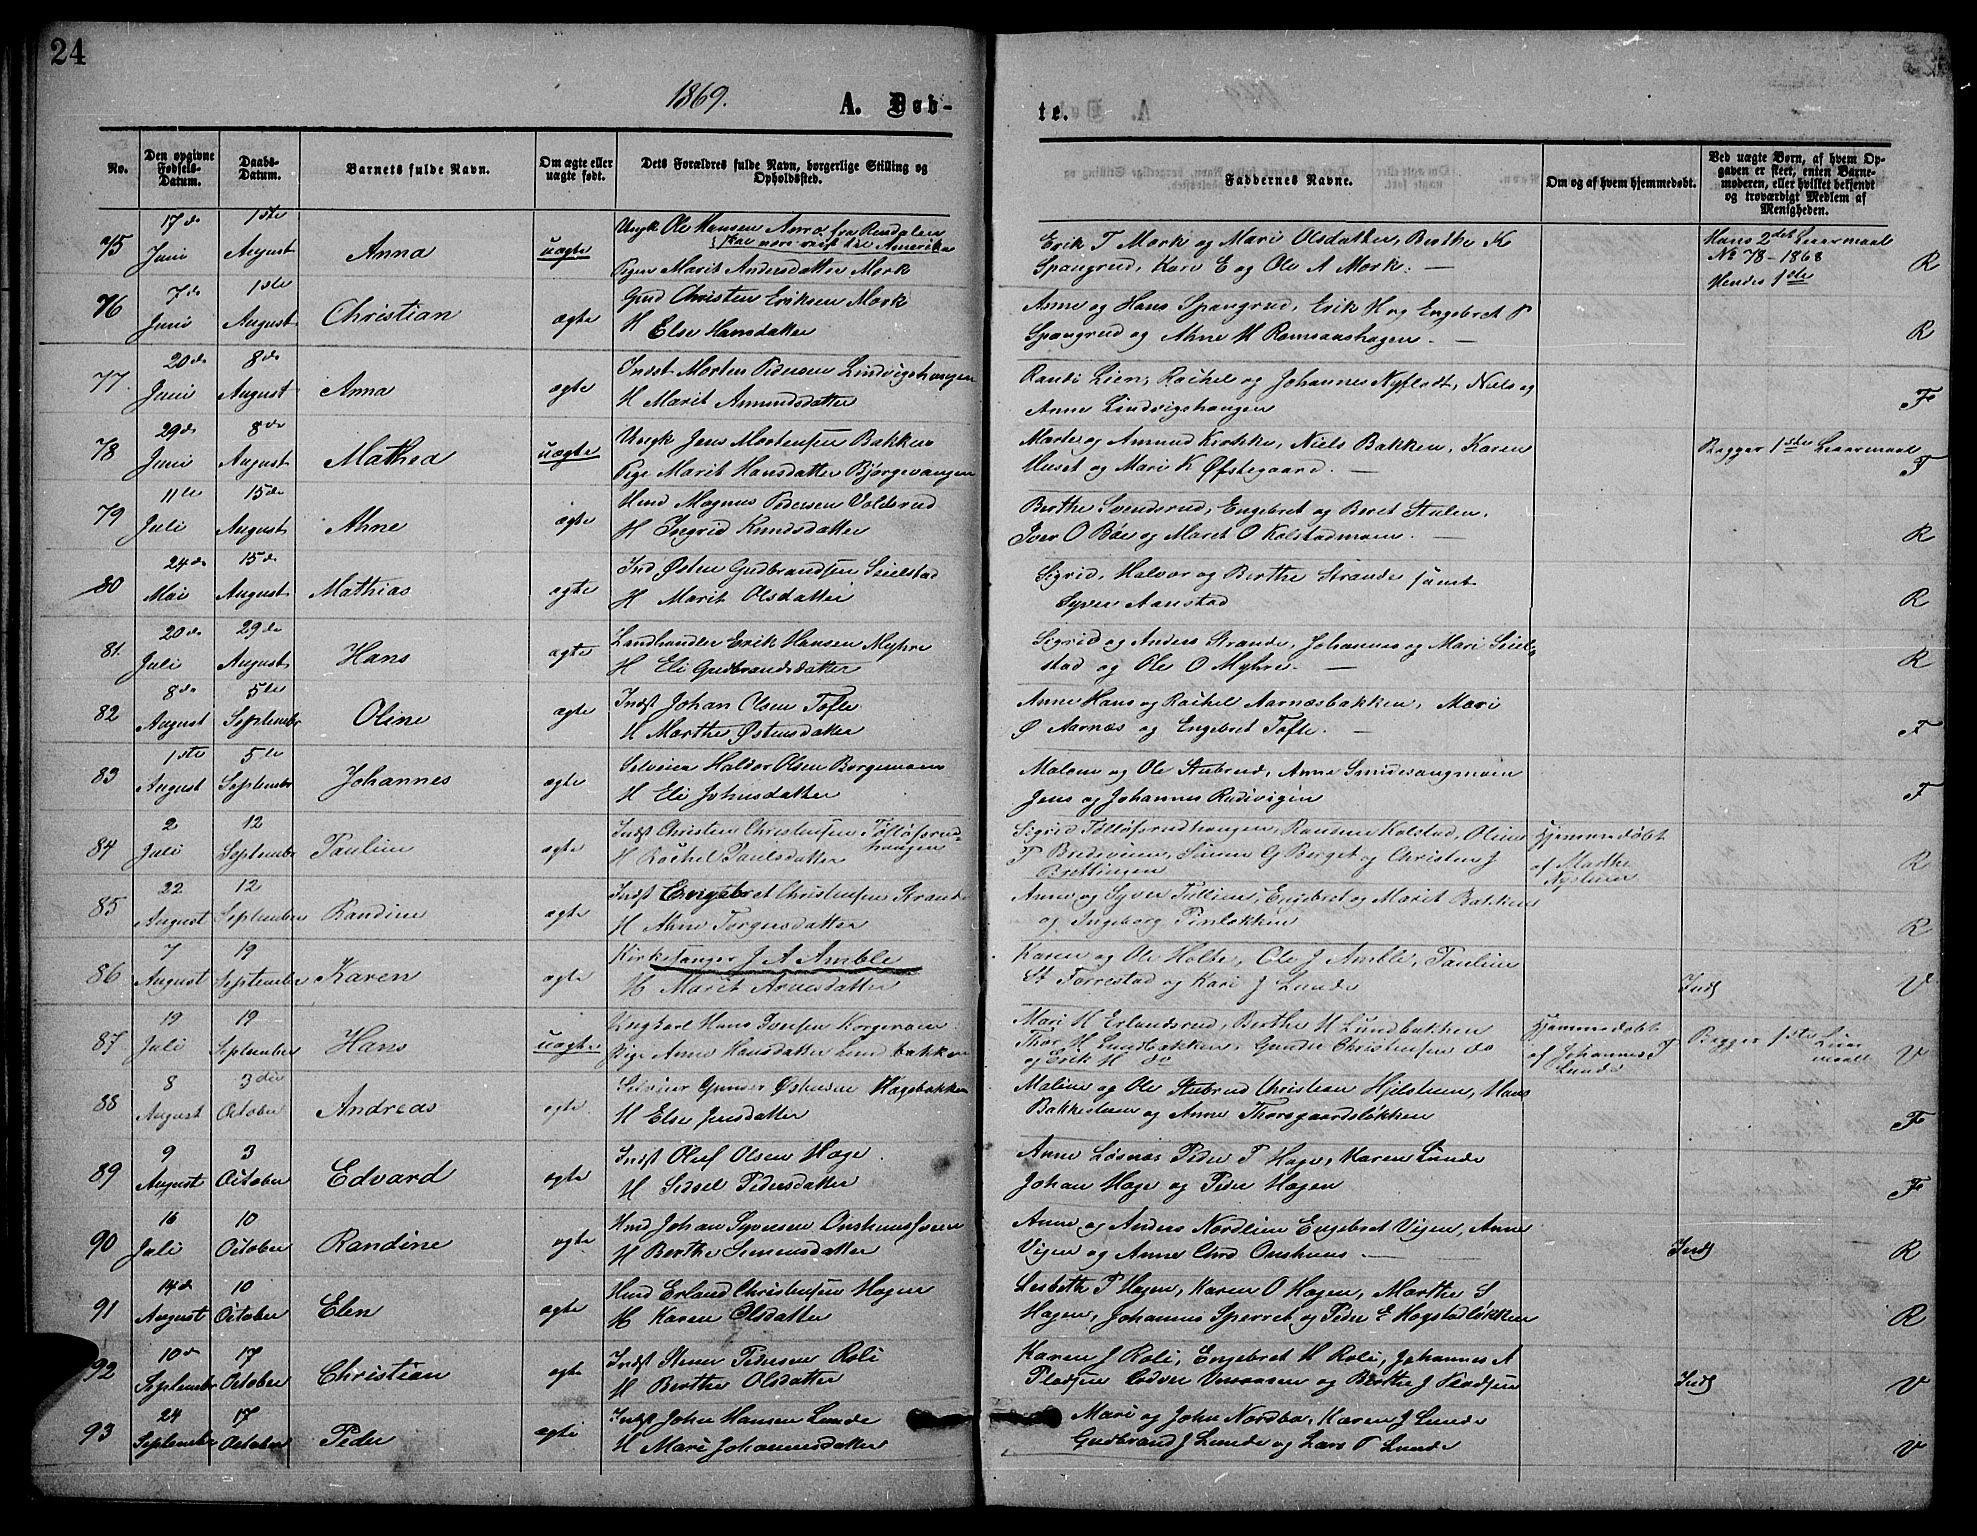 24
1869.
A. Døb-
te.
No.
Den opgivne Fødsels-Datum.
Daabs-Datum.
Barnets fulde Navn.
Om ægte eller uægte født.
Dets Forældres fulde Navn, borgerlige Stilling og Opholdssted.
Faddernes Navne.
Om og af hvem hjemmedøbt.
Ved uægte Børn, af hvem Opgaven er skeet, enten Barnemoderen, eller hvilket bekjendt og troværdigt Medlem af Menigheden.
75 17de Juni 1ste August Anna uægte
Ungk Ole Hansen fra Rendalen
være reist til Amerika
Pige Marit Andersdatter Mork
Erik T Mork og Mari Olsdatter, Berthe K
Spangrud, Kari E og Ole A Mork. —
Hans 2det Leiermaal
No 78 - 1868
Hendes 1ste
R
76 7de Juni 1ste August Christian ægte
Gmd Christen Eriksen Mork
H Else Hansdatter
Anne og Hans Spangrud, Erik H og Engebret P
Spangrud og Ahne M Ramsaashagen. —
R
77. 20de Juni 8de August Anna ægte
Indst Morten Pedersen Lindvigshaugen
H Marit Amundsdatter
Randi Lien, Rachel og Johannes Nyflodt, Niels og
Anne Lindvigshaugen
F
78 29de Juni 8de August Mathea uægte
Ungk Jens Mortensen Bakken
Pige Marit Hansdatter Bjørgevangen
Marte og Amund Kirkke, Niels Bakken, Karen
Huset og Mari K Øfstegaard. —
Begger 1ste Leiermaal
F
79 11te Juli 15de August Ahne ægte
Hmd Magnus Pedersen Volderud
H Ingrid Knudsdatter
Berthe Svendsrud, Engebret og Beret Stulen,
Iver O Bøe og Maret O Kolstadmoen. —
R
80 24de Mai 15de August Mathias ægte
Ind Østen Gudbrandsen Seielstad
H Marit Olsdatter
Sigrid, Halvor og Berthe Strande samt
Syver Aanstad
R
81. 20de Juli 29de August Hans ægte
Landhandler Erik Hansen Myhre
H Eli Gudbrandsdatter
Sigrid og Anders Strande, Johannes og Mari Seiel-
stad og Ole O Myhre. —
R
82 8de August 5te September Oline ægte
Indst Johan Olsen Tofte
H Marthe Østensdatter
Anne Hans og Rachel Aarnæsbakken, Mari
Ø Aarnæs og Engebret Tofte. —
F
83 1ste August 5te September Johannes ægte
Selveier Haldor Olsen Borgemoen
H Eli Johnsdatter
Malene og Ole Stubrud, Anne Smidesvangmoen
Jens og Johannes Rudivigen
F
84 2 Juli 12 September Pauline ægte
Indst Christen Christensen Tøfløfsrud-
haugen
H Rachel Paulsdatter
Sigrid Tølløfsrudhaugen, Rasmus Kolstad, Oline
T Bredeveien, Simen G Berget og Christen J
Brettingen
Hjemmedøbt
af Marthe
Nystuen
R
85 22 August 12 September Randine ægte
Indst Engebret Christensen Strande
H Ahne Torgersdatter
Anne og Syver Tillien, Engebret og Marit Bakken
og Ingeborg Tinløkken
R
86 7 August 19 September Karen ægte
Kirkesanger J A Amble
H Marit Arnesdatter
Karen og Ole Holte, Ole J Amble, Pauline
St Forrestad og Kari J Lunde
Inds
V
87 19 Juli 19 September Hans uægte
Ungkarl Hans Iversen Korgeroen
Pige Anne Hansdatter Lundbakken
Mari H Erlandsrud, Berthe H Lundbakken
Thor H Lundbakken, Gunder Christensen do
og Erik H do
Hjemmedøbt
af Johannes T
Lunde
Begger 1ste Leier
maal
V
88 8 August 3die October Andreas ægte
Selveier Gunder Østensen Hagebakken
H Else Jensdatter
Maline og Ole Stubrud Christian Hjelstuen, Hans
Bakkestuen og Anne Thorsgaardsløkken
F
89 9 August 3 October Edvard ægte
Indst Oluf Olsen Hage
H Sidsel Pedersdatter
Anne Løsnæs Peder T Hage, Karen Lunde
Johan Hage og Peder Hagen
F
90 16 Juli 10 October Randine ægte
Hmd Johan Syversen Onshuus
H Berthe Simensdatter
Anne og Anders Nordlien Engebret Vigen, Anne
Vigen og Anne Chrd Onshuus —
Inds
R
91 14de August 10 October Elen ægte
Hmd Erland Christensen Hagen
H Karen Olsdatter
Lisbeth P Hagen, Karen O Hagen, Marthe S
Hagen, Johannes Sperret og Peder E Hogstadløkken
R
92 10de September 17 October Christian ægte
Indst Stener Pedersen Roli
H Berthe Olsdatter
Karen J Roli, Engebret H Roli, Johannes A
Pladsen og Berthe J
Inds
V
93 24 September 17 October Peder ægte
Indst John Hansen Lunde
H Mari Johannesdatter
Mari og John Nordbø, Karen J Lunde
Gudbrand J Lunde og Lars T Lunde
V